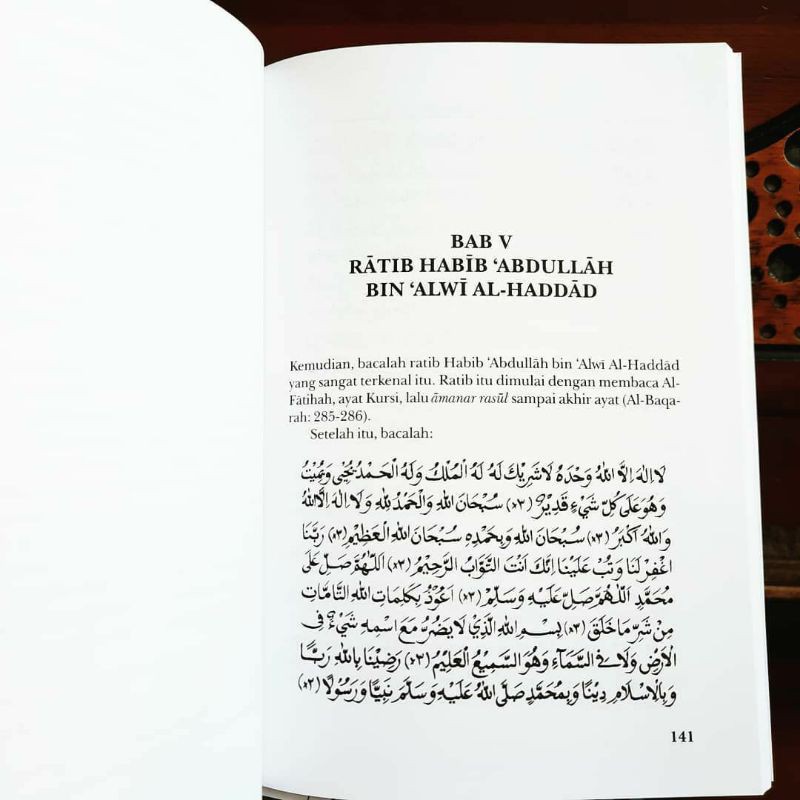 BAB V
RĀTIB HABĪB ‘ABDULLĀH
BIN ‘ALWĪ AL-HADDĀD
Kemudian, bacalah ratib Habib ‘Abdullāh bin ‘Alwī Al-Haddād
yang sangat terkenal itu. Ratib itu dimulai dengan membaca Al-
Fātihah, ayat Kursi, lalu āmanar rasūl sampai akhir ayat (Al-Baqa-
rah: 285-286).
Setelah itu, bacalah:
لَا اِلٰهَ اِلَّا اللهُ وَحْدَهُ لَا شَرِيْكَ لَهُ لَهُ الْمُلْكُ وَلَهُ الْحَمْدُ يُحْيِى وَيُمِيْتُ
وَهُوَ عَلَى كُلِّ شَيْءٍ قَدِيْرٌ (×٣) سُبْحَانَ اللهِ وَالْحَمْدُ لِلّٰهِ وَلَا اِلٰهَ اِلَّا اللهُ
وَاللهُ اَكْبَرُ (×٣) سُبْحَانَ اللهِ وَبِحَمْدِهِ سُبْحَانَ اللهِ الْعَظِيْمِ (×٣) رَبَّنَا
اغْفِرْ لَنَا وَتُبْ عَلَيْنَا اِنَّكَ اَنْتَ التَّوَّابُ الرَّحِيْمُ (×٣) اَللّٰهُمَّ صَلِّ عَلَى
مُحَمَّدٍ اَللّٰهُمَّ صَلِّ عَلَيْهِ وَسَلِّمْ (×٣) اَعُوْذُ بِكَلِمَاتِ اللهِ التَّامَّاتِ
مِنْ شَرِّ مَا خَلَقَ (×٣) بِسْمِ اللهِ الَّذِيْ لَا يَضُرُّ مَعَ اسْمِهِ شَيْءٌ فِى
الْاَرْضِ وَلَا فِى السَّمَآءِ وَهُوَ السَّمِيْعُ الْعَلِيْمُ (×٣) رَضِيْنَا بِاللهِ رَبًّا
وَبِالْاِسْلَامِ دِيْنًا وَبِمُحَمَّدٍ صَلَّى اللهُ عَلَيْهِ وَسَلَّمَ نَبِيًّا وَرَسُوْلًا (×٣)
141